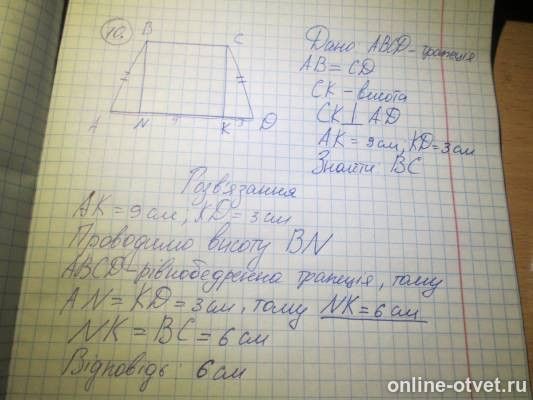 10.
B
C
A
N
9
K
3
D
Дано: ABCD - трапеція
AB = CD
CK - висота
CK ⊥ AD
AK = 9 см, KD = 3 см
Знайти: BC
Розв'язання
AK = 9 см, KD = 3 см
Проводимо висоту BN
ABCD - рівнобедренна трапеція, тому
AN = KD = 3 см, тому NK = 6 см
NK = BC = 6 см
Відповідь: 6 см
online-otvet.ru